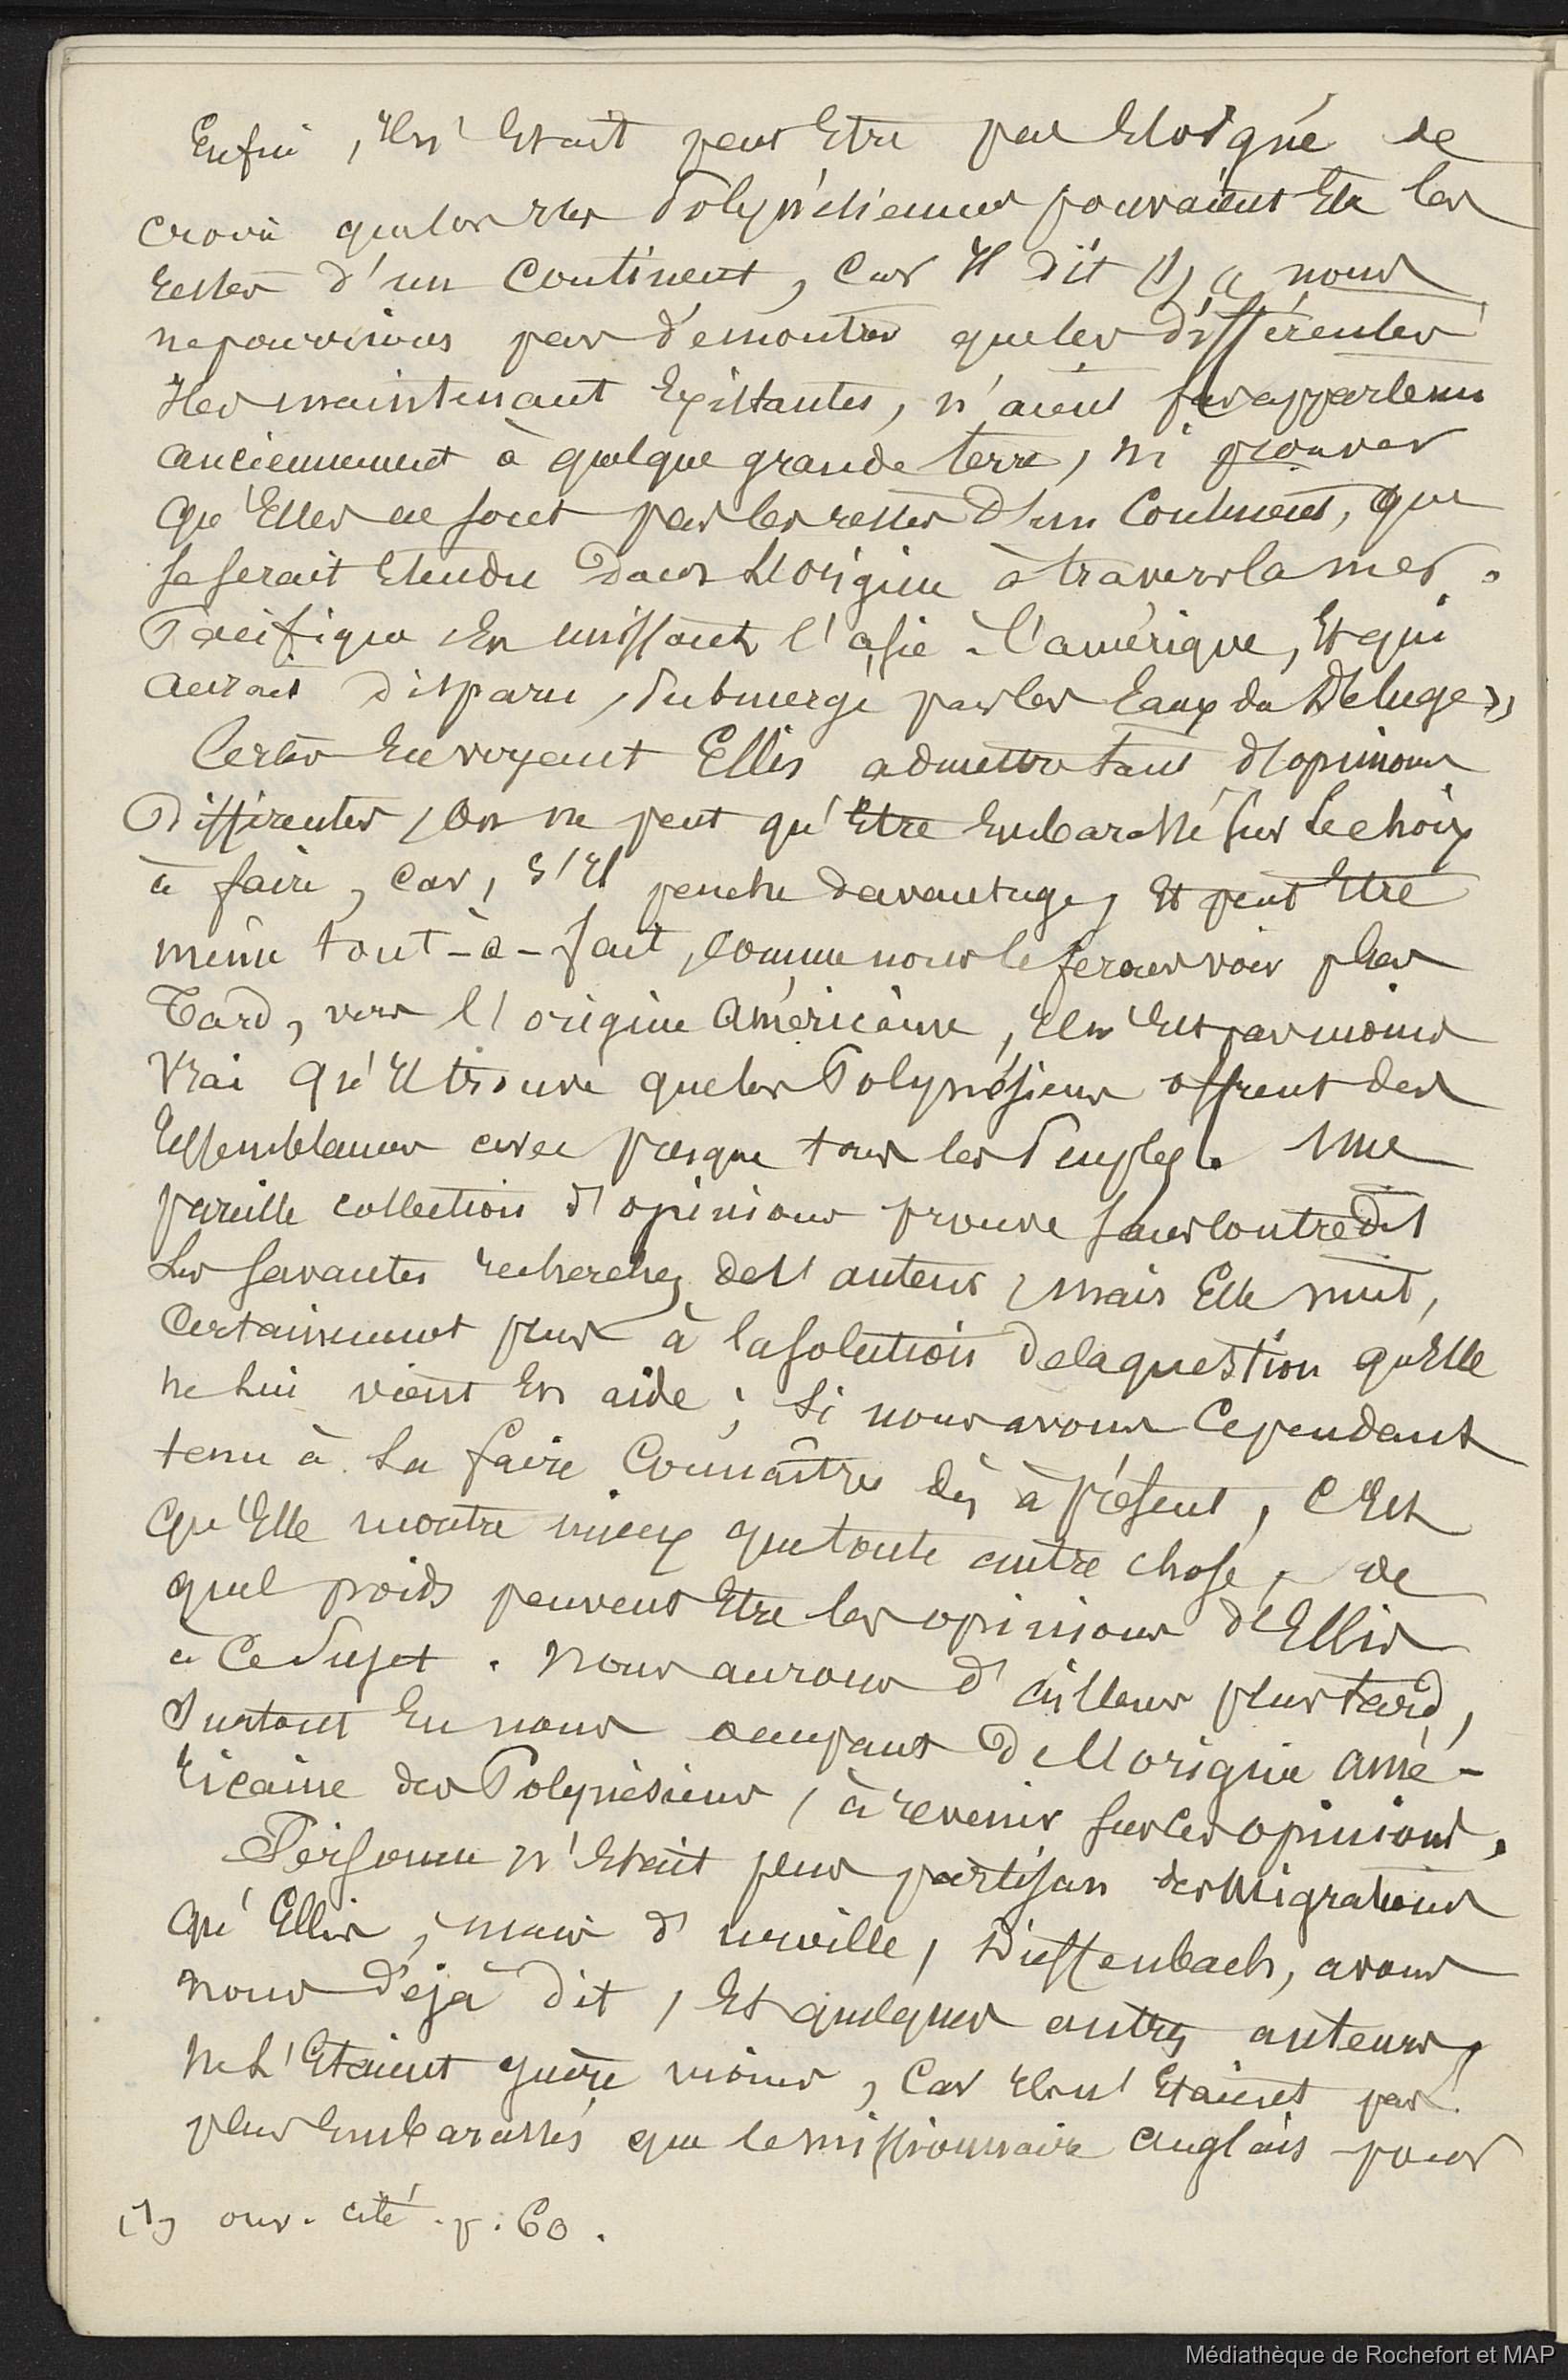 Enfin, Il n'Etait peut Etre pas Eloigné de
croire que les Iles Polynésiennes pouvaient Etre les
restes d'un Continent, Car Il dit (1) « nous
ne pourrions pas démontrer que les différentes
Iles maintenant Existantes, n'aient pas appartenu
anciennement à quelque grande terre, ni prouver
qu'Elles ne sont pas les restes d'un Continent, qui
se serait Etendu dans l'Origine à travers la mer
Pacifique En unissant l'asie à l'amérique, Et qui
aurait disparu, submergé par les Eaux du Déluge »
Certes En voyant Ellis admettre tant d'opinions
Différentes, On ne peut qu'Etre Embarassé sur le choix
à faire, car, s'Il penche davantage, Et peut Etre
même tout-à-fait, comme nous le ferons voir plus
Tard, vers l'origine Américaine, Il n'Est pas moins
vrai qu'Il trouve que les Polynésiens offrent des
ressemblances avec presque tous les Peuples. Une
pareille collection d'opinions prouve sans contredit
les savantes recherches de l'auteur, mais Elle nuit,
Certainement plus à la solution de la question qu'Elle
ne lui vient En aide ; si nous avons Cependant
tenu à la faire Connaître dès à présent, c'Est
qu'Elle montre mieux que toute autre chose, de
quel poids peuvent Etre les opinions d'Ellis
à Ce Sujet. Nous aurons d'ailleurs plus tard,
Surtout En nous occupant De l'origine Amé-
ricaine des Polynésiens, à revenir sur ces opinions.
Personne n'Etait plus partisan des Migrations
qu'Ellis, mais d'urville, Dieffenbach, avons
nous déjà dit, Et quelques autres auteurs,
ne l'Etaient guère moins, Car Ils n'Etaient pas
plus Embarassés que le missionnaire Anglais pour
(1) ouv. cité. p. 60.
Médiathèque de Rochefort et MAP